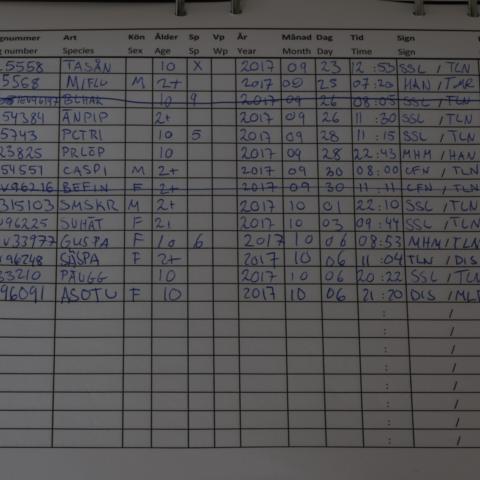 gnummer Art Kön Ålder Sp Vp År Månad Dag Tid Sign
g number Species Sex Age Sp Wp Year Month Day Time Sign
5558 TASÅN 10 X 2017 09 23 12 :53 SSL / TLN
5568 M/FLU M 2+ 2017 09 25 07 :20 HAN / TMR
BLHAK 10 9 2017 09 26 08 :05 SSL / TLN
54384 ÄNPIP 2+ 2017 09 26 11 :30 SSL / TLN
5743 PCTRI 10 5 2017 09 28 11 :15 SSL / TLN
23825 PRLÖP 10 2017 09 28 22 :43 MHM / HAN
54551 CASPI M 2+ 2017 09 30 08 :00 CFN / TLN
V96216 BEFIN F 2+ 2017 09 30 11 :11 CFN / TLN
315103 SMSKR M 2+ 2017 10 01 22 :10 SSL / TLN
V96225 SUHÄT F 2+ 2017 10 03 09 :44 SSL / TLN
V33977 GUSPA F 10 6 2017 10 06 08 :53 MHM / TLN
V96248 SÄSPA F 2+ 2017 10 06 11 :04 TLN / DIS
33210 PÄUGG 10 2017 10 06 20 :22 SSL / TLN
96091 ASOTU F 10 2017 10 06 21 :20 DIS / ML
: /
: /
: /
: /
: /
: /
: /
: /